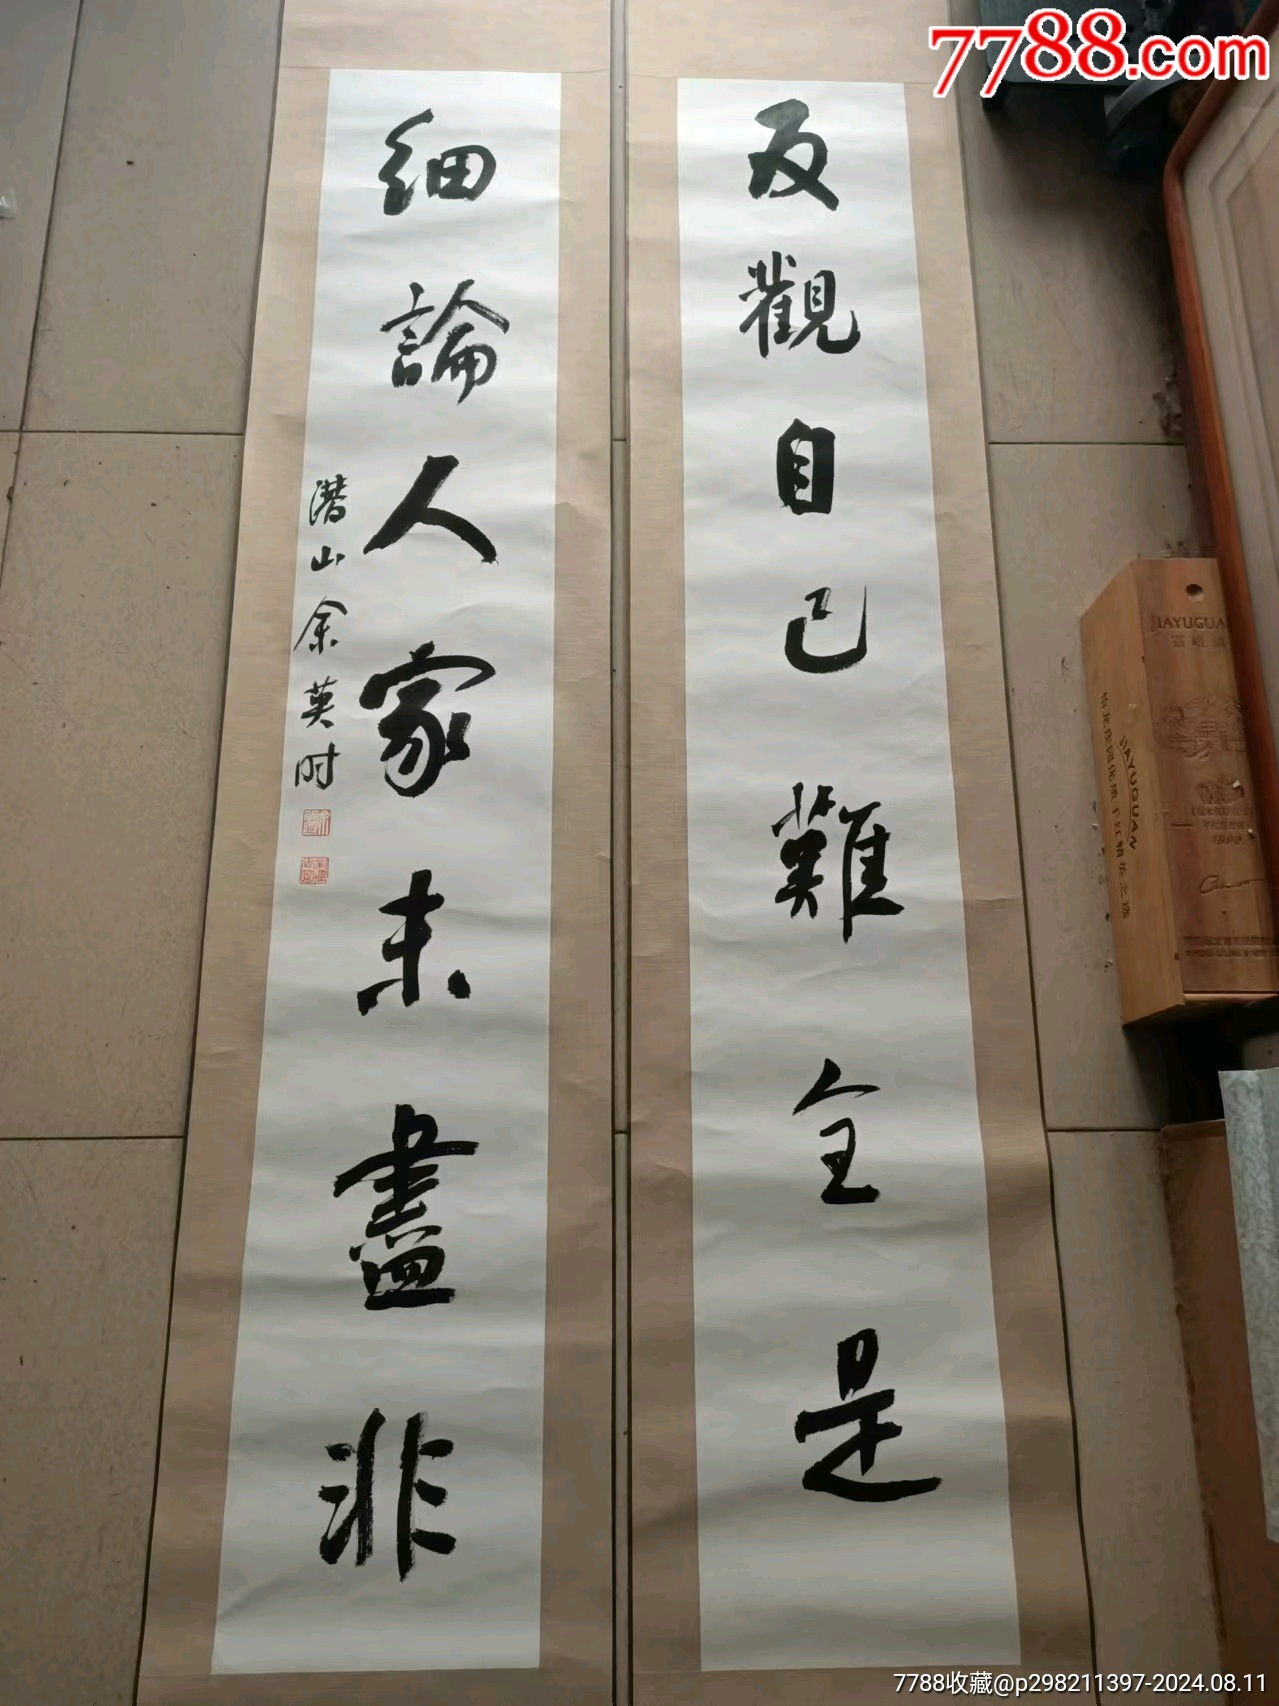 7788.com
反觀自己難全是
細論人家未盡非
潜山余英时
JAYUGUAN
1999
7788收藏@p298211397-2024.08.11